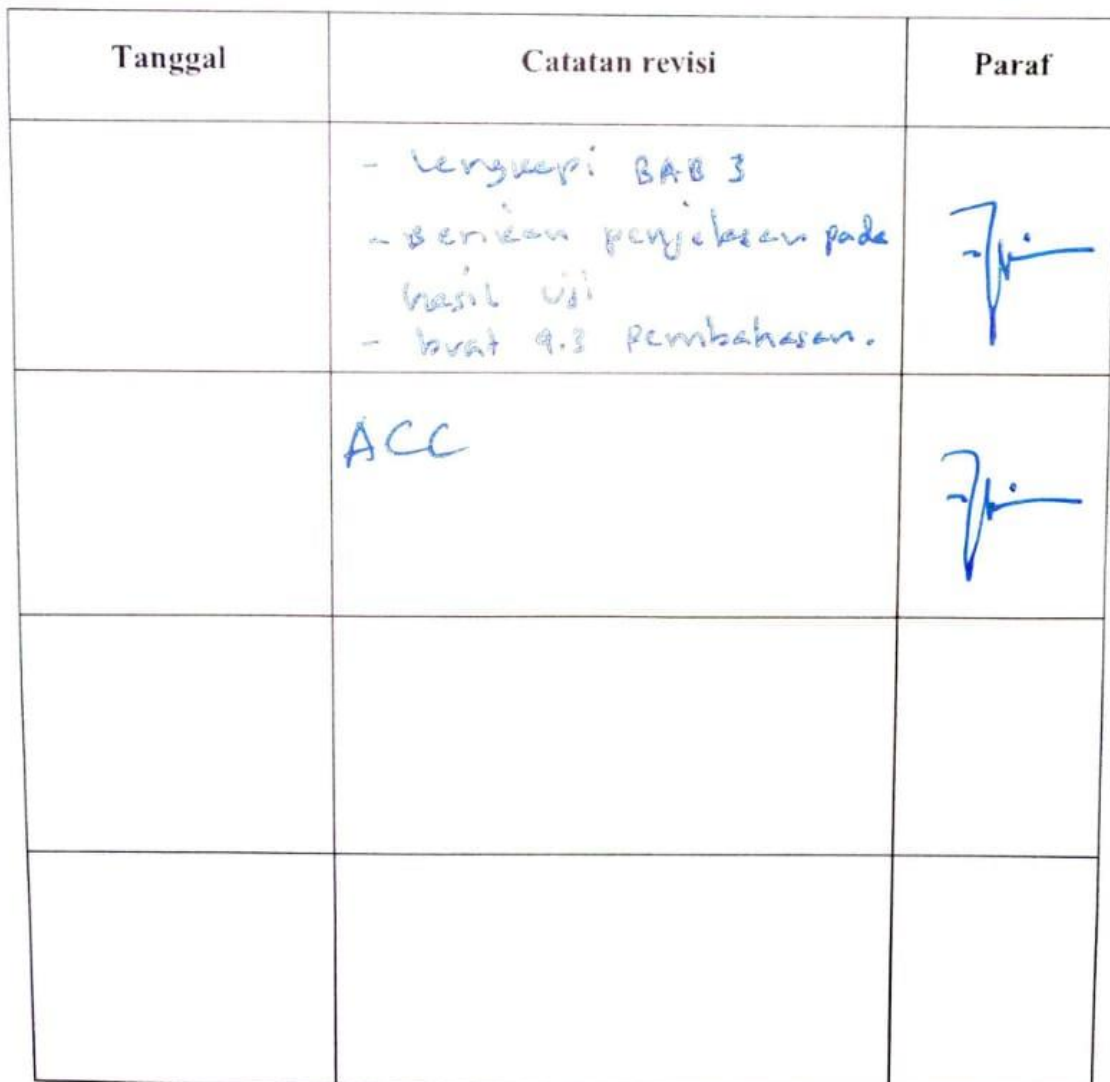 Tanggal Catatan revisi Paraf
- lengkapi BAB 3
- Berikan penjelasan pada
hasil uji
- buat 4.3 Pembahasan.
ACC